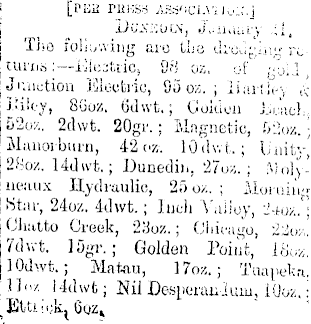 [PER PRESS ASSOCIATION.]
DUNEDIN, January 21.
The following are the dredging re-
turns:—Electric, 98 oz. of gold,
Junction Electric, 95 oz.; Hartley &
Riley, 86oz. 6dwt.; Golden Beach,
52oz. 2dwt. 20gr.; Magnetic, 52oz.;
Manorburn, 42 oz. 10dwt.; Unity,
28oz. 14dwt.; Dunedin, 27oz.; Moly-
neaux Hydraulic, 25 oz.; Morning
Star, 24oz. 4dwt.; Inch Valley, 24oz.;
Chatto Creek, 23oz.; Chicago, 22oz.
7dwt. 15gr.; Golden Point, 18oz.
10dwt.; Matau, 17oz.; Tuapeka,
11oz 14dwt; Nil Desperandum, 10oz.;
Ettrick, 6oz.